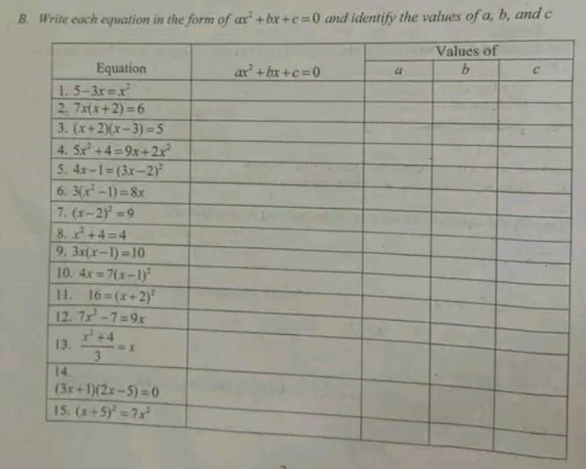 B. Write each equation in the form of ax² + bx + c = 0 and identify the values of a, b, and c
Values of
Equation ax² + bx + c = 0 a b c
1. 5-3x = x²
2. 7x(x+2) = 6
3. (x+2)(x-3) = 5
4. 5x² + 4 = 9x + 2x²
5. 4x-1 = (3x-2)²
6. 3(x²-1) = 8x
7. (x-2)² = 9
8. x² + 4 = 4
9. 3x(x-1) = 10
10. 4x = 7(x-1)²
11. 16 = (x+2)²
12. 7x² - 7 = 9x
13. (x²+4)/3 = x
14.
(3x+1)(2x-5) = 0
15. (x+5)² = 7x²